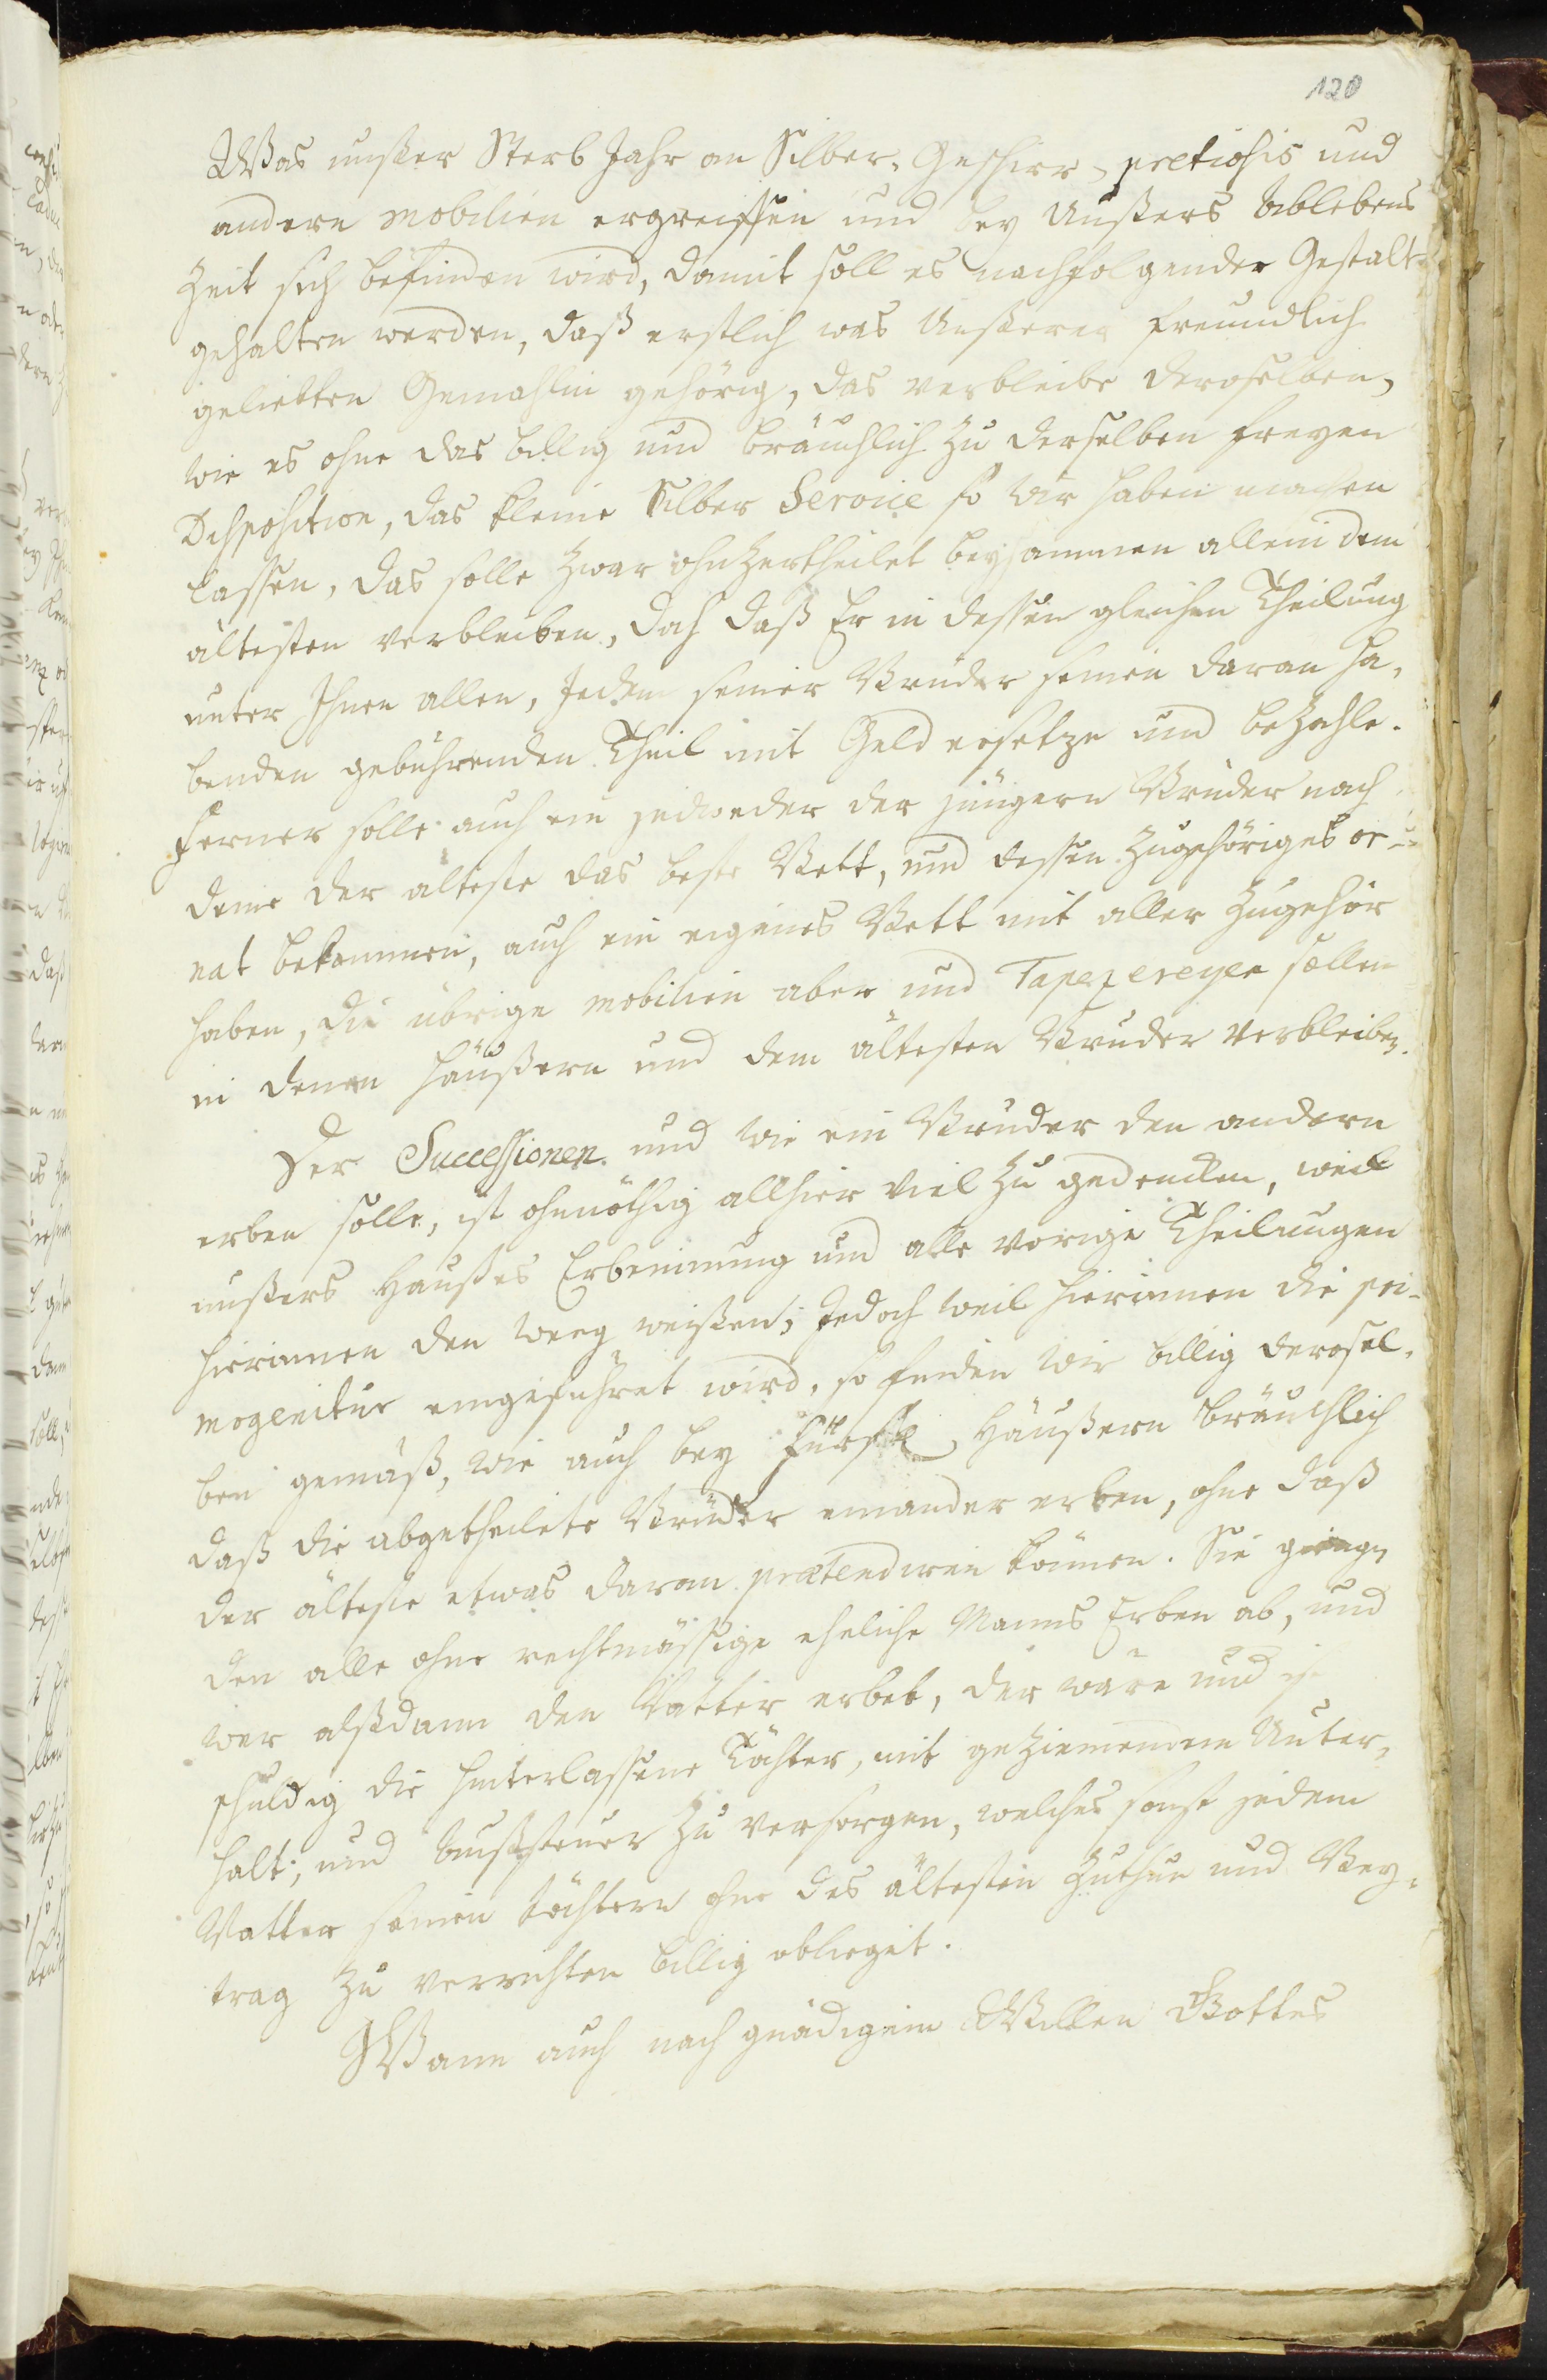 120
Was unßer Sterb Jahr an Silber, Geschirr, pretiosis und
andern mobilien ergreiffen und bey Unßers Ablebens
Zeit sich befinden wird, damit soll es nachfolgender Gestalt
gehalten werden, daß erstlich was Unßerer freundlich
geliebten Gemahlin gehörig, das verbleibe deroselben,
wie es ohne das billig und bräuchlich zu derselben freyen
Disposition, das kleine Silber Service so wir haben machen
lassen, das solle zwar ohnzertheilet beysammen allein dem
ältesten verbleiben, doch daß Er in dessen gleichen Theilung
unter Ihnen allen, Jedem seiner Brüder seinen daran ha,
benden gebührenden Theil mit Geld ersetze und bezahle.
Ferner solle auch ein jedweder der jüngern Brüder nach
deme der älteste das beste Bett, und dessen zugehöriges or-
nat bekommen, auch ein eigenes Bett mit aller Zugehör
haben, die übrige mobilien aber und Tapezereyen sollen
in denen Häußern und dem ältesten Bruder verbleiben.
Der Successionen und wie ein Bruder den andern
erben solle, ist ohnnöthig allhier viel zu gedencken, weil
unßers Haußes Erbeinnung und alle vorige Theilungen
hierinnen den Weeg weißen; Jedoch weil hierinnen die pri-
mogenitur eingeführet wird, so finden wir billig derosel,
ben gemäß, wie auch bey Fürstl. Häußern bräuchlich
daß die abgetheilete Brüder einander erben, ohne daß
der älteste etwas daran prætendiren können. Sie giengen
den alle ohne rechtmässige eheliche Manns Erben ab, und
wer alßdann den Vatter erbet, der wäre und ist
schuldig die hinterlassene Töchter, mit geziemendem Unter,
halt; und Außsteuer zu versorgen, welches sonst jedem
Vatter seinen Töchtern ohne des ältesten Zuthun und Bey,
trag zu verrichten billig obliegt.
Wann auch nach gnädigem Willen Gottes